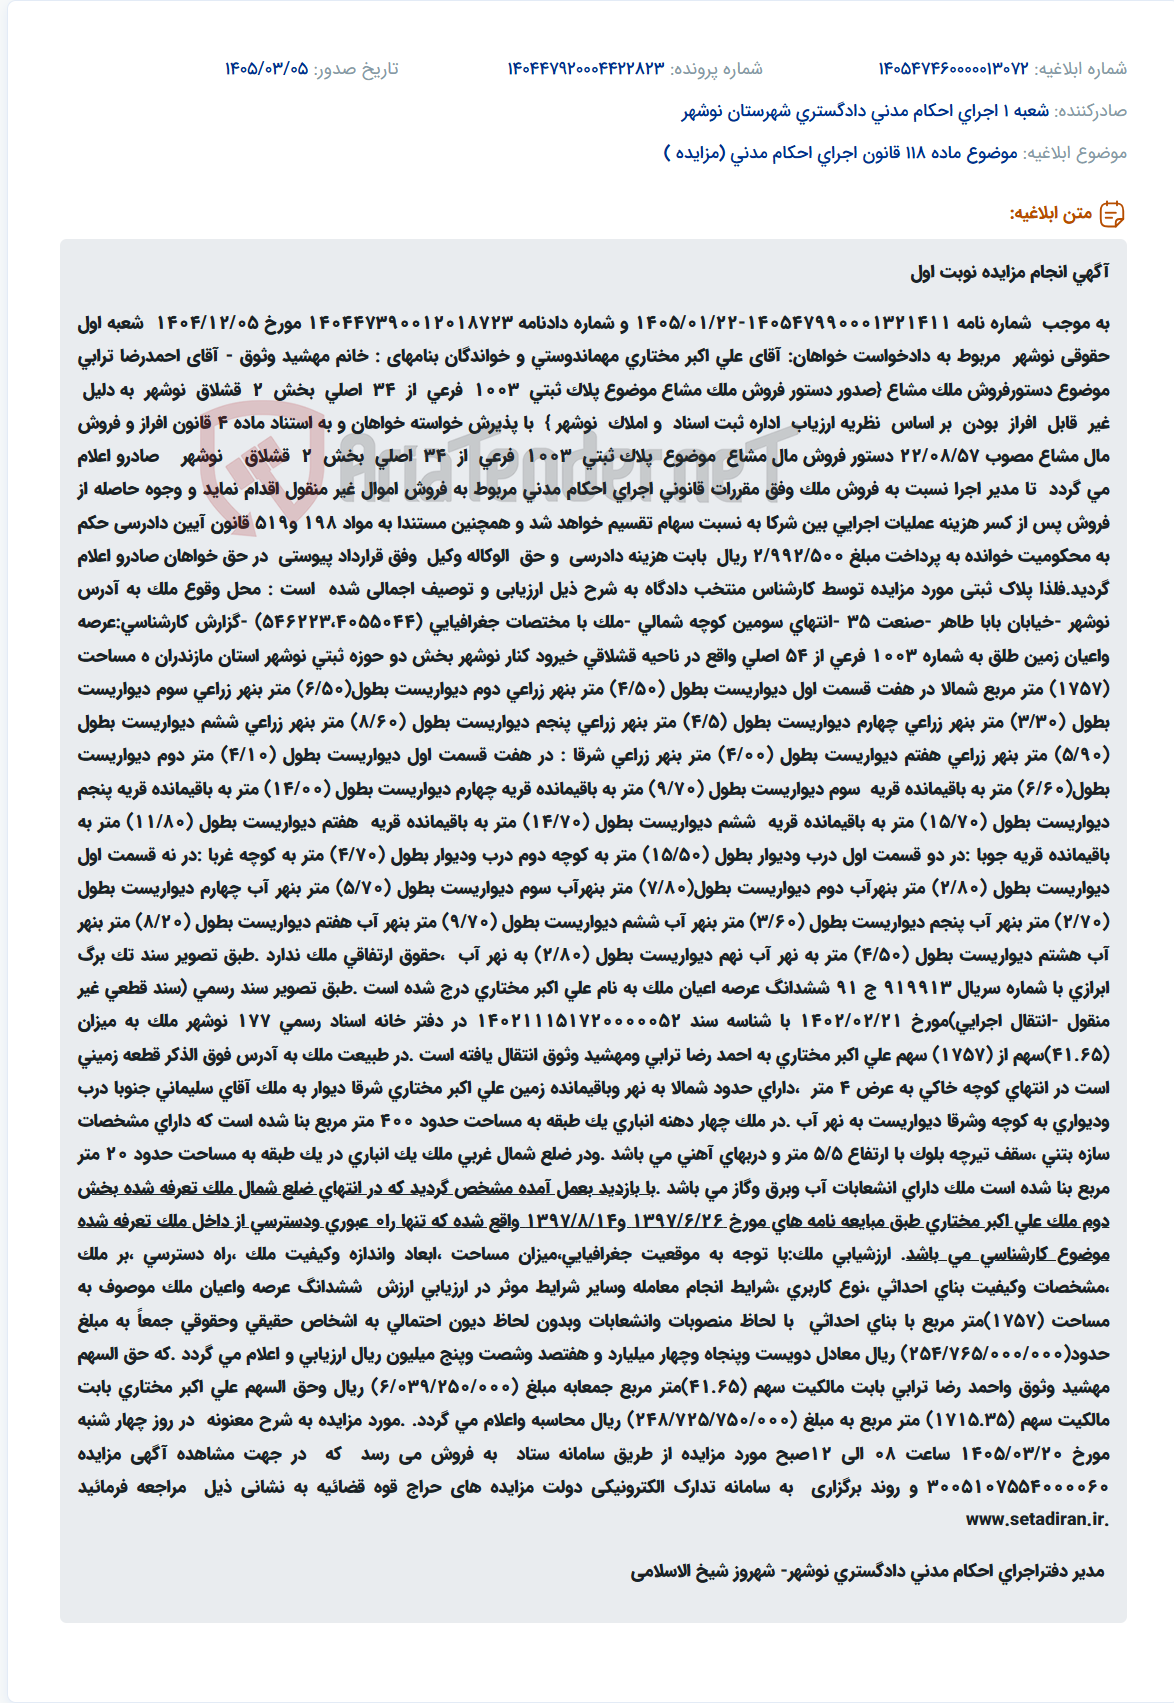 شماره ابلاغیه: ۱۴۰۵۴۷۴۶۰۰۰۰۰۱۳۰۷۲ شماره پرونده: ۱۴۰۴۴۷۹۲۰۰۰۴۴۲۲۸۲۳ تاریخ صدور: ۱۴۰۵/۰۳/۰۵
صادرکننده: شعبه ۱ اجراي احکام مدني دادگستري شهرستان نوشهر
موضوع ابلاغیه: موضوع ماده ۱۱۸ قانون اجراي احکام مدني (مزایده )
متن ابلاغیه:
آگهي انجام مزایده نوبت اول
به موجب شماره نامه ۱۴۰۵۴۷۹۹۰۰۰۱۳۲۱۴۱۱-۱۴۰۵/۰۱/۲۲ و شماره دادنامه ۱۴۰۴۴۷۳۹۰۰۱۲۰۱۸۷۲۳ مورخ ۱۴۰۴/۱۲/۰۵ شعبه اول
حقوقی نوشهر مربوط به دادخواست خواهان: آقای علي اکبر مختاري مهماندوستي و خواندگان بنامهای : خانم مهشید وثوق - آقای احمدرضا ترابي
موضوع دستورفروش ملك مشاع {صدور دستور فروش ملك مشاع موضوع پلاك ثبتي ۱۰۰۳ فرعي از ۳۴ اصلي بخش ۲ قشلاق نوشهر به دلیل
غیر قابل افراز بودن بر اساس نظریه ارزیاب اداره ثبت اسناد و املاك نوشهر } با پذیرش خواسته خواهان و به استناد ماده ۴ قانون افراز و فروش
مال مشاع مصوب ۲۲/۰۸/۵۷ دستور فروش مال مشاع موضوع پلاك ثبتي ۱۰۰۳ فرعي از ۳۴ اصلي بخش ۲ قشلاق نوشهر صادرو اعلام
مي گردد تا مدیر اجرا نسبت به فروش ملك وفق مقررات قانوني اجراي احکام مدني مربوط به فروش اموال غیر منقول اقدام نماید و وجوه حاصله از
فروش پس از کسر هزینه عملیات اجرایي بین شرکا به نسبت سهام تقسیم خواهد شد و همچنین مستندا به مواد ۱۹۸ و۵۱۹ قانون آیین دادرسی حکم
به محکومیت خوانده به پرداخت مبلغ ۲/۹۹۲/۵۰۰ ریال بابت هزینه دادرسی و حق الوکاله وکیل وفق قرارداد پیوستی در حق خواهان صادرو اعلام
گردید.فلذا پلاک ثبتی مورد مزایده توسط کارشناس منتخب دادگاه به شرح ذیل ارزیابی و توصیف اجمالی شده است : محل وقوع ملك به آدرس
نوشهر -خیابان بابا طاهر -صنعت ۳۵ -انتهاي سومین کوچه شمالي -ملك با مختصات جغرافیایي (۵۴۶۲۲۳،۴۰۵۵۰۴۴) -گزارش کارشناسي:عرصه
واعیان زمین طلق به شماره ۱۰۰۳ فرعي از ۵۴ اصلي واقع در ناحیه قشلاقي خیرود کنار نوشهر بخش دو حوزه ثبتي نوشهر استان مازندران ه مساحت
(۱۷۵۷) متر مربع شمالا در هفت قسمت اول دیواریست بطول (۴/۵۰) متر بنهر زراعي دوم دیواریست بطول(۶/۵۰) متر بنهر زراعي سوم دیواریست
بطول (۳/۳۰) متر بنهر زراعي چهارم دیواریست بطول (۴/۵) متر بنهر زراعي پنجم دیواریست بطول (۸/۶۰) متر بنهر زراعي ششم دیواریست بطول
(۵/۹۰) متر بنهر زراعي هفتم دیواریست بطول (۴/۰۰) متر بنهر زراعي شرقا : در هفت قسمت اول دیواریست بطول (۴/۱۰) متر دوم دیواریست
بطول(۶/۶۰) متر به باقیمانده قریه سوم دیواریست بطول (۹/۷۰) متر به باقیمانده قریه چهارم دیواریست بطول (۱۴/۰۰) متر به باقیمانده قریه پنجم
دیواریست بطول (۱۵/۷۰) متر به باقیمانده قریه ششم دیواریست بطول (۱۴/۷۰) متر به باقیمانده قریه هفتم دیواریست بطول (۱۱/۸۰) متر به
باقیمانده قریه جوبا :در دو قسمت اول درب ودیوار بطول (۱۵/۵۰) متر به کوچه دوم درب ودیوار بطول (۴/۷۰) متر به کوچه غربا :در نه قسمت اول
دیواریست بطول (۲/۸۰) متر بنهرآب دوم دیواریست بطول(۷/۸۰) متر بنهرآب سوم دیواریست بطول (۵/۷۰) متر بنهر آب چهارم دیواریست بطول
(۲/۷۰) متر بنهر آب پنجم دیواریست بطول (۳/۶۰) متر بنهر آب ششم دیواریست بطول (۹/۷۰) متر بنهر آب هفتم دیواریست بطول (۸/۲۰) متر بنهر
آب هشتم دیواریست بطول (۴/۵۰) متر به نهر آب نهم دیواریست بطول (۲/۸۰) به نهر آب ،حقوق ارتفاقي ملك ندارد .طبق تصویر سند تك برگ
ابرازي با شماره سریال ۹۱۹۹۱۳ ج ۹۱ ششدانگ عرصه اعیان ملك به نام علي اکبر مختاري درج شده است .طبق تصویر سند رسمي (سند قطعي غیر
منقول -انتقال اجرایي)مورخ ۱۴۰۲/۰۲/۲۱ با شناسه سند ۱۴۰۲۱۱۱۵۱۷۲۰۰۰۰۰۵۲ در دفتر خانه اسناد رسمي ۱۷۷ نوشهر ملك به میزان
(۴۱.۶۵)سهم از (۱۷۵۷) سهم علي اکبر مختاري به احمد رضا ترابي ومهشید وثوق انتقال یافته است .در طبیعت ملك به آدرس فوق الذکر قطعه زمیني
است در انتهاي کوچه خاکي به عرض ۴ متر ،داراي حدود شمالا به نهر وباقیمانده زمین علي اکبر مختاري شرقا دیوار به ملك آقاي سلیماني جنوبا درب
ودیواري به کوچه وشرقا دیواریست به نهر آب .در ملك چهار دهنه انباري یك طبقه به مساحت حدود ۴۰۰ متر مربع بنا شده است که داراي مشخصات
سازه بتني ،سقف تیرچه بلوك با ارتفاع ۵/۵ متر و دربهاي آهني مي باشد .ودر ضلع شمال غربي ملك یك انباري در یك طبقه به مساحت حدود ۲۰ متر
مربع بنا شده است ملك داراي انشعابات آب وبرق وگاز مي باشد .با بازدید بعمل آمده مشخص گردید که در انتهاي ضلع شمال ملك تعرفه شده بخش
دوم ملك علي اکبر مختاري طبق مبایعه نامه هاي مورخ ۱۳۹۷/۶/۲۶ و۱۳۹۷/۸/۱۴ واقع شده که تنها راه عبوري ودسترسي از داخل ملك تعرفه شده
موضوع کارشناسي مي باشد. ارزشیابي ملك:با توجه به موقعیت جغرافیایي،میزان مساحت ،ابعاد واندازه وکیفیت ملك ،راه دسترسي ،بر ملك
،مشخصات وکیفیت بناي احداثي ،نوع کاربري ،شرایط انجام معامله وسایر شرایط موثر در ارزیابي ارزش ششدانگ عرصه واعیان ملك موصوف به
مساحت (۱۷۵۷)متر مربع با بناي احداثي با لحاظ منصوبات وانشعابات وبدون لحاظ دیون احتمالي به اشخاص حقیقي وحقوقي جمعاً به مبلغ
حدود(۲۵۴/۷۶۵/۰۰۰/۰۰۰) ریال معادل دویست وپنجاه وچهار میلیارد و هفتصد وشصت وپنج میلیون ریال ارزیابي و اعلام مي گردد .که حق السهم
مهشید وثوق واحمد رضا ترابي بابت مالکیت سهم (۴۱.۶۵)متر مربع جمعابه مبلغ (۶/۰۳۹/۲۵۰/۰۰۰) ریال وحق السهم علي اکبر مختاري بابت
مالکیت سهم (۱۷۱۵.۳۵) متر مربع به مبلغ (۲۴۸/۷۲۵/۷۵۰/۰۰۰) ریال محاسبه واعلام مي گردد. .مورد مزایده به شرح معنونه در روز چهار شنبه
مورخ ۱۴۰۵/۰۳/۲۰ ساعت ۰۸ الی ۱۲صبح مورد مزایده از طریق سامانه ستاد به فروش می رسد که در جهت مشاهده آگهی مزایده
۳۰۰۵۱۰۷۵۵۴۰۰۰۰۶۰ و روند برگزاری به سامانه تدارک الکترونیکی دولت مزایده های حراج قوه قضائیه به نشانی ذیل مراجعه فرمائید
www.setadiran.ir.
مدیر دفتراجراي احکام مدني دادگستري نوشهر- شهروز شیخ الاسلامی
AriaTender.neT